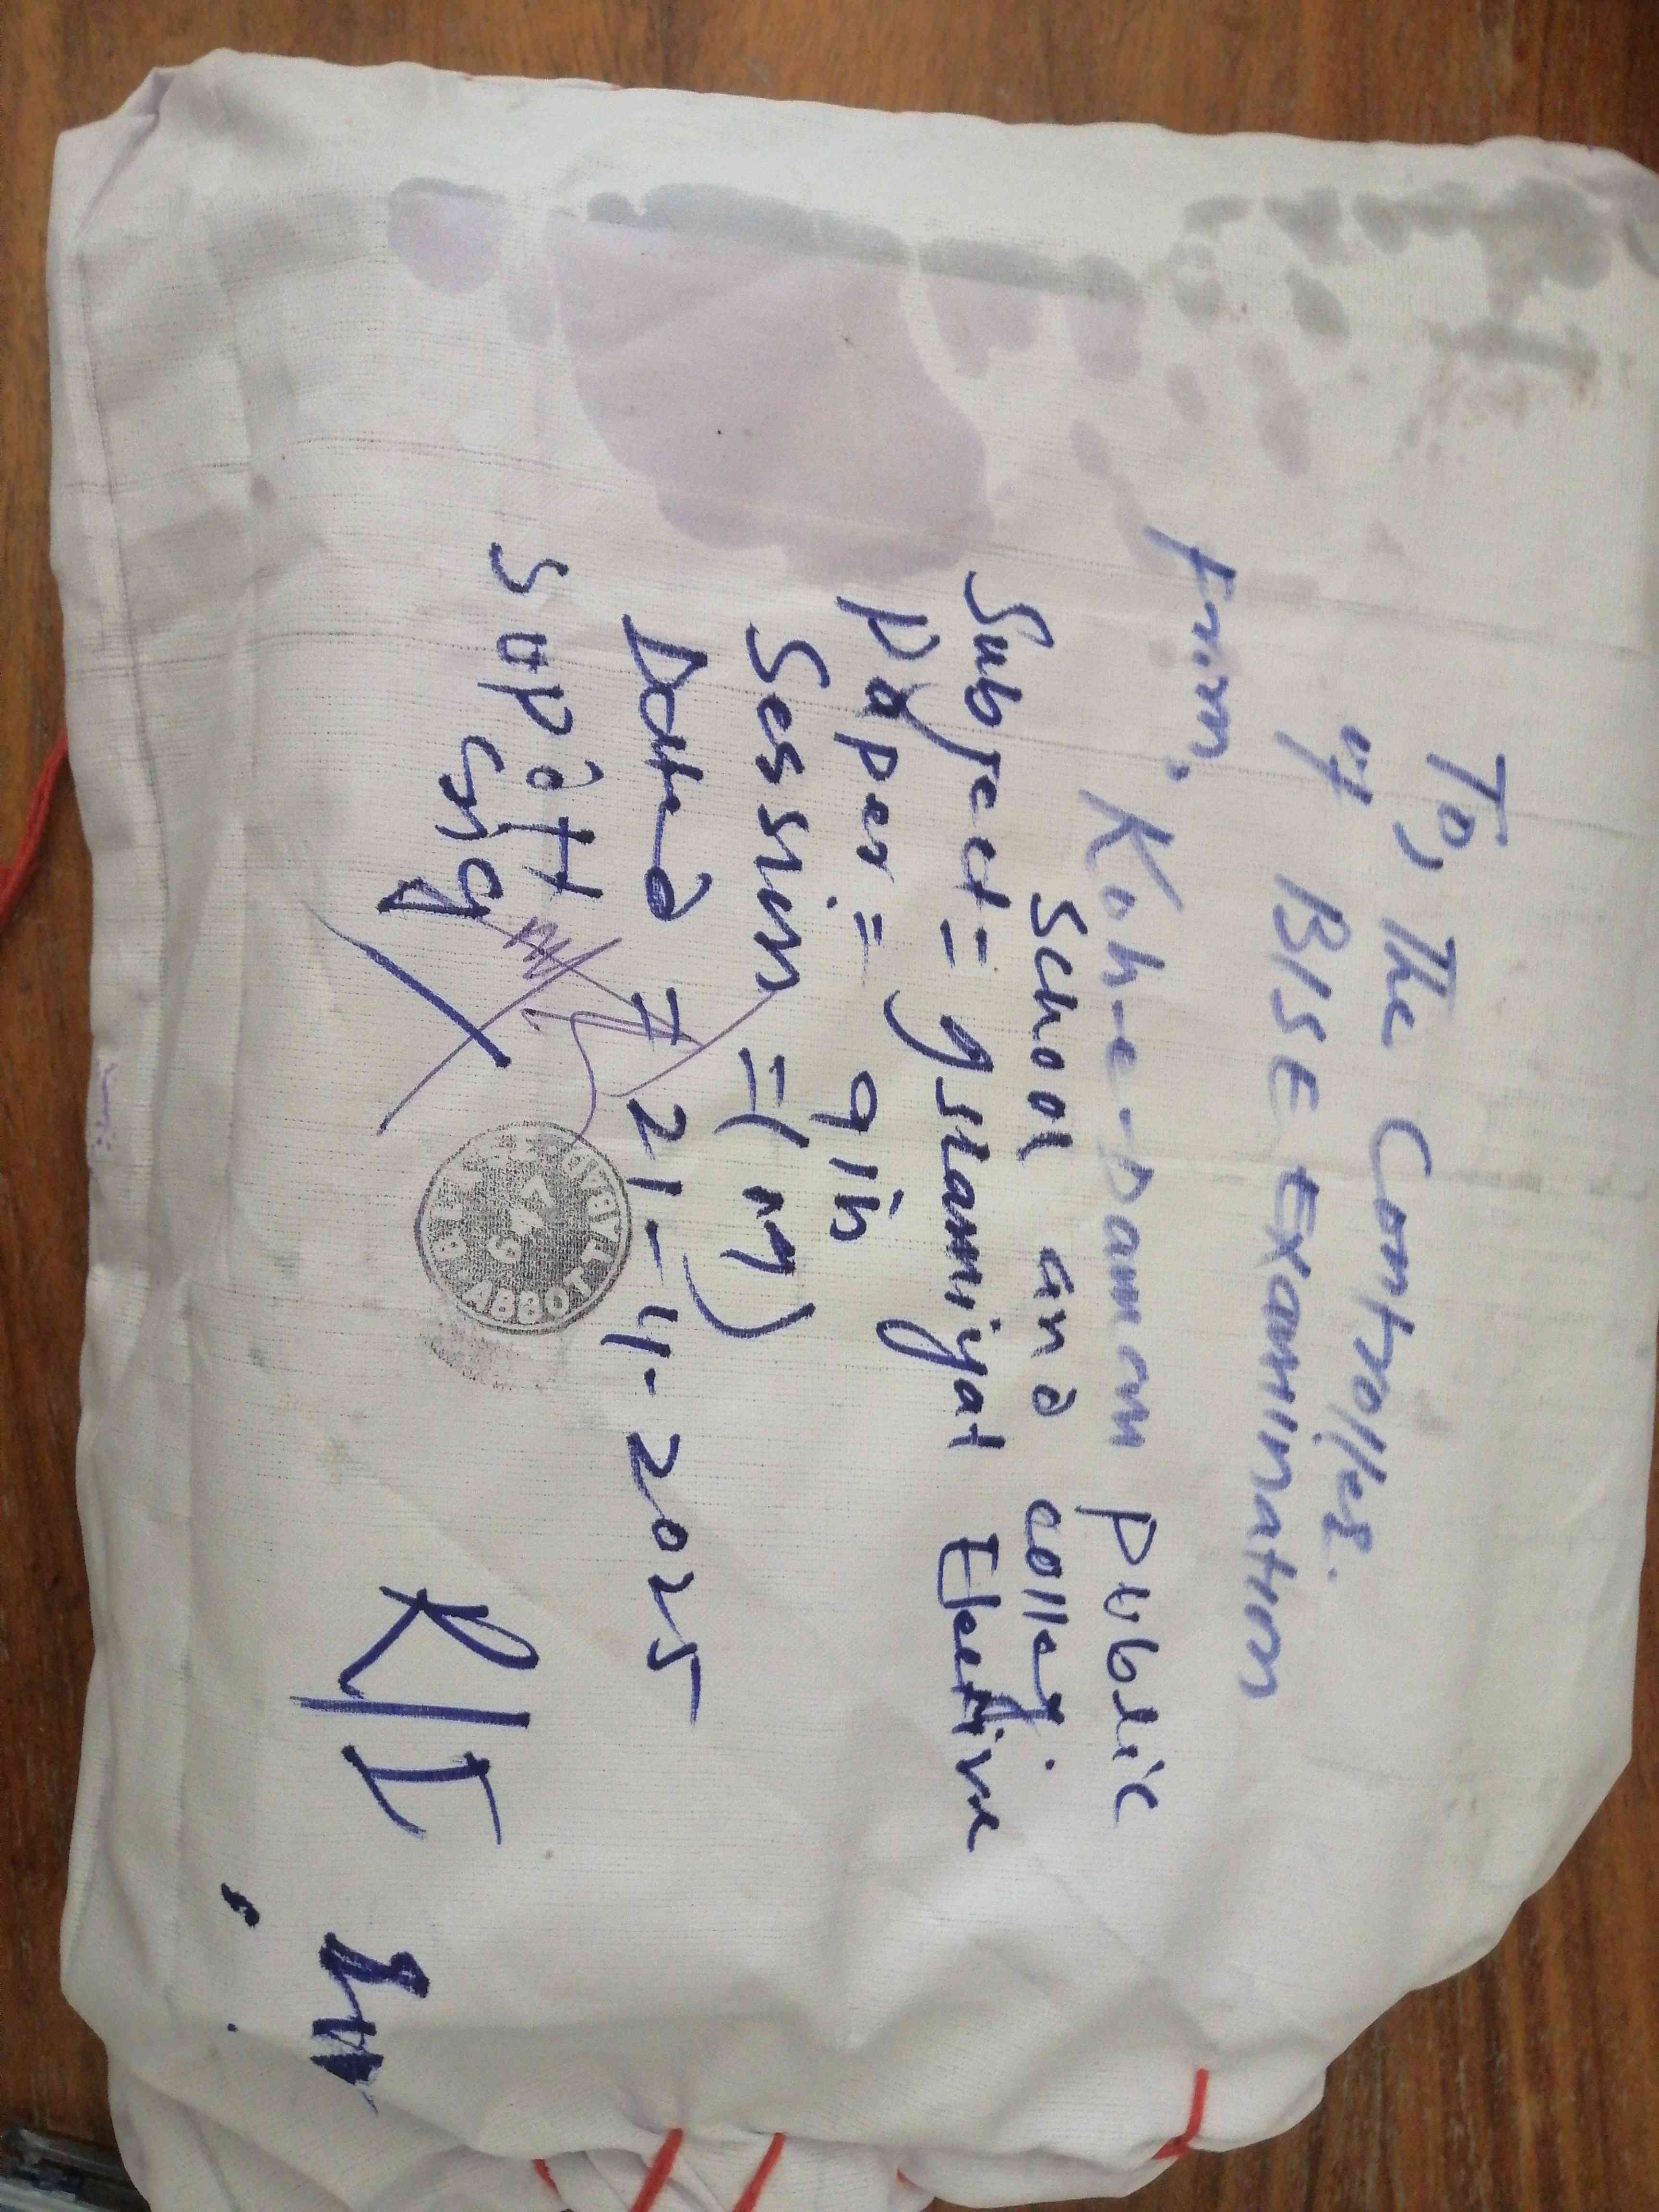 To, The Controller.
of BISE Examination
From.
Koh-e-Daman Public
School and College
Subject = Islamiyat Elective
Paper = 9th
Session = (M)
Dated = 21-4-2025
Supdtt
Sig
R/I
ABBOTTABAD
647